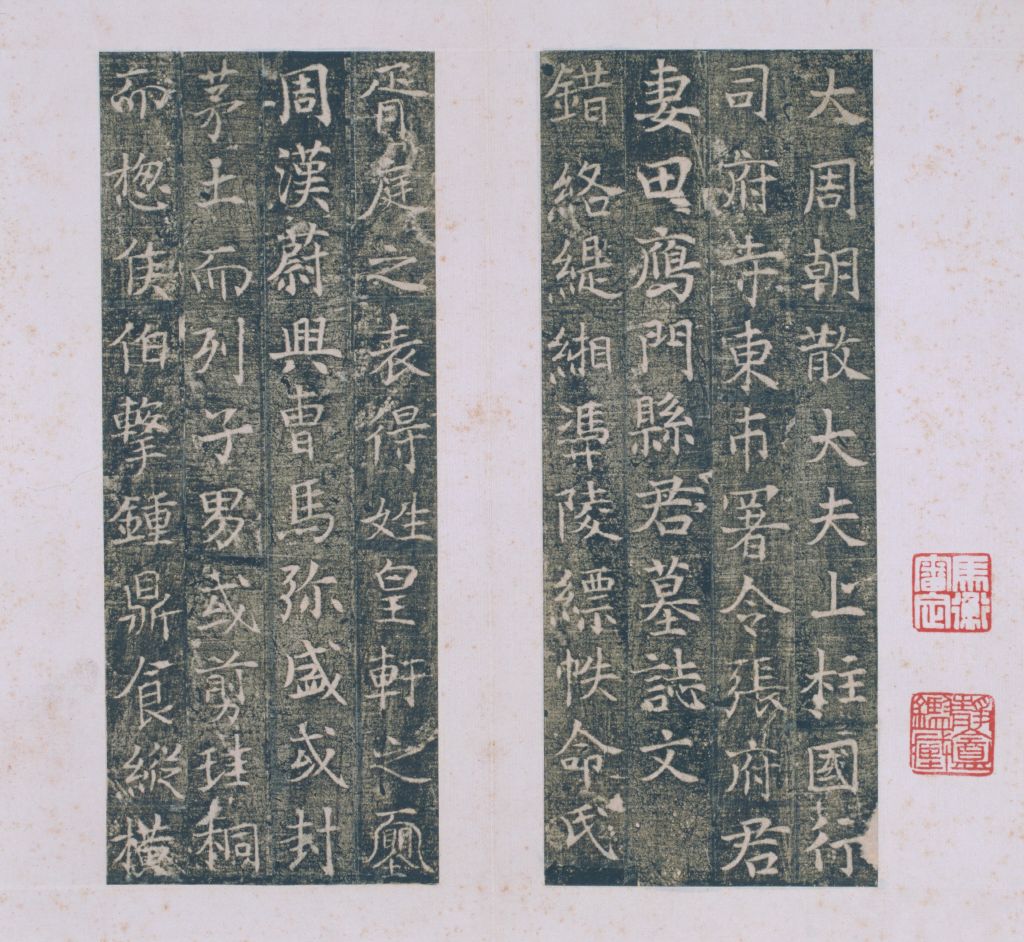 大周朝散大夫上柱國行
司府寺東市署令張府君
妻田鴈門縣君墓誌文
錯絡緹緗馮陵縹帙命氏
胥庭之表得姓皇軒之壐
周漢蔚興曹馬弥盛或封
茅土而列子男或剪珪桐
而揔侯伯擊鍾鼎食縱橫
馬衡審定